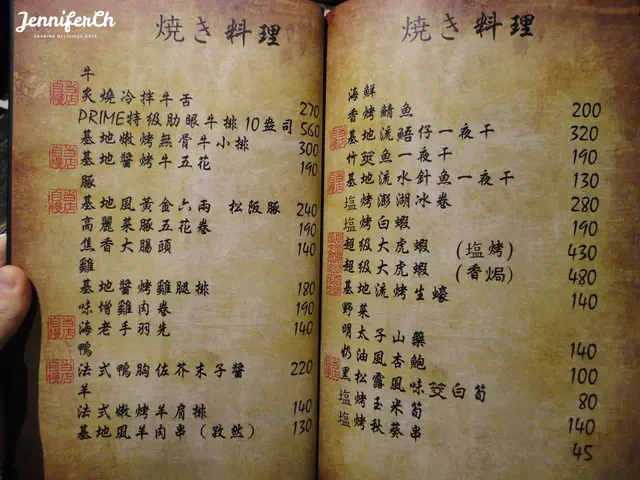 JenniferCh
SHARING DELICIOUS DAYS
焼き料理
牛
炙燒冷拌牛舌 270
PRIME特級肋眼牛排10盎司 560
基地嫩烤無骨牛小排 300
基地醬烤牛五花 190
豚
基地風黃金六兩 松阪豚 240
高麗菜豚五花卷 190
焦香大腸頭 140
雞
基地醬烤雞腿排 180
味增雞肉卷 190
海老手羽先 140
鴨
法式鴨胸佐芥末子醬 220
羊
法式嫩烤羊肩排 140
基地風羊肉串（孜然） 130
焼き料理
海鮮
香烤鯖魚 200
基地流鯃仔一夜干 320
竹筴魚一夜干 190
基地流水針魚一夜干 130
塩烤澎湖冰卷 280
塩烤白蝦 190
超級大虎蝦 （塩烤） 430
超級大虎蝦 （香焗） 480
基地流烤生蠔 140
野菜
明太子山藥 140
奶油風杏鮑 100
黑松露風味筊白筍 80
塩烤玉米筍 140
塩烤秋葵串 45